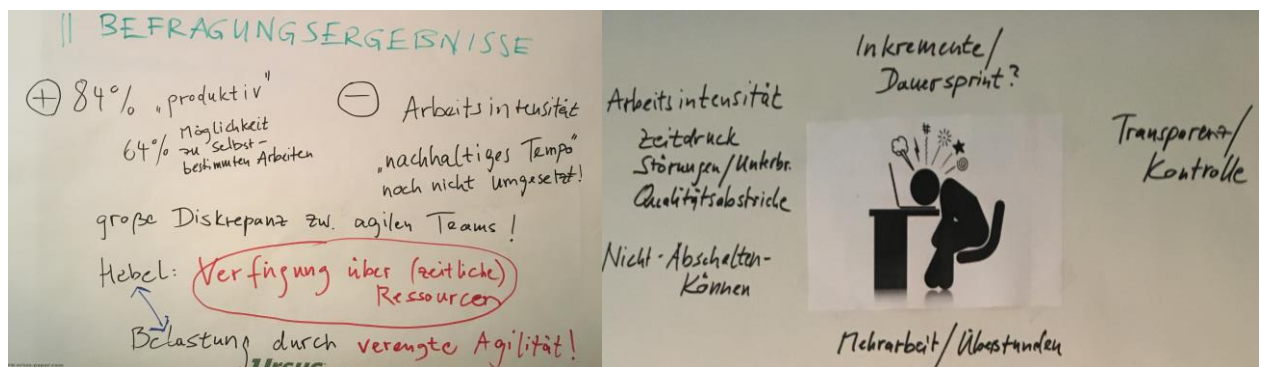 || BEFRAGUNGSERGEBNISSE
+ 84% „produktiv"
64% Möglichkeit
zu selbst-
bestimmten Arbeiten
– Arbeitsintensität
„nachhaltiges Tempo"
noch nicht umgesetzt!
große Diskrepanz zw. agilen Teams!
Hebel: Verfügung über (zeitliche)
Ressourcen
Belastung durch verengte Agilität!
Ursus
Inkremente/
Dauersprint?
Arbeitsintensität
Zeitdruck
Störungen/Unterbr.
Qualitätsabstriche
Nicht-Abschalten-
Können
Transparenz/
Kontrolle
#
Mehrarbeit/Überstunden